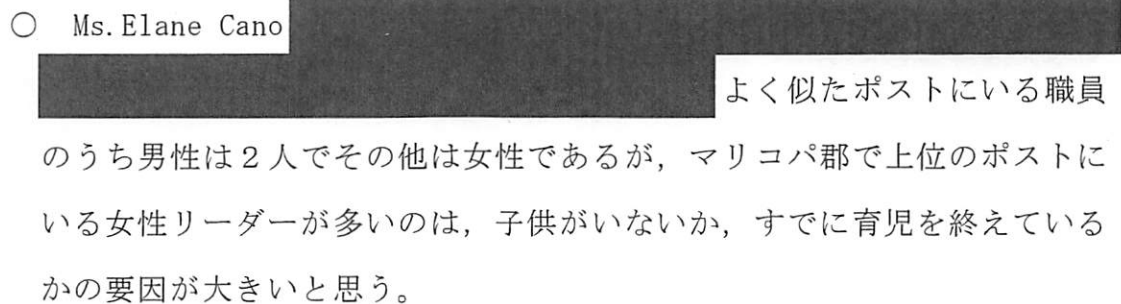 ○ Ms. Elane Cano
よく似たポストにいる職員
のうち男性は２人でその他は女性であるが，マリコパ郡で上位のポストに
いる女性リーダーが多いのは，子供がいないか，すでに育児を終えている
かの要因が大きいと思う。